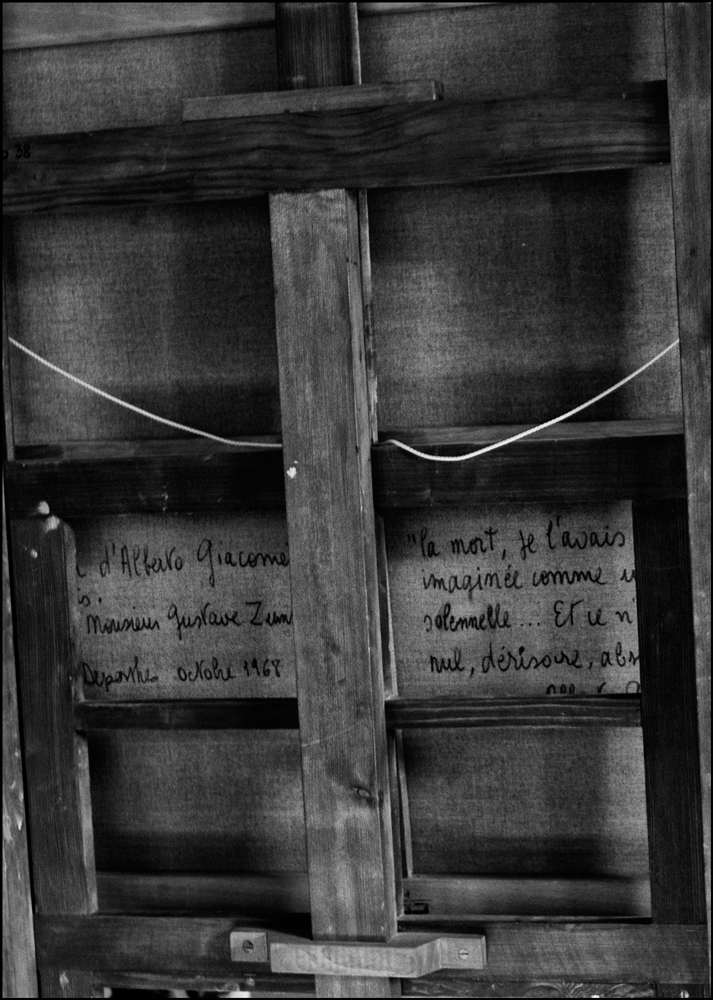 38
d'Alberto Giacome
is.
Monsieur Gustave Zum
octobre 1968
"la mort, je l'avais
imaginée comme u
solennelle... Et ce n'
nul, dérisoire, abs